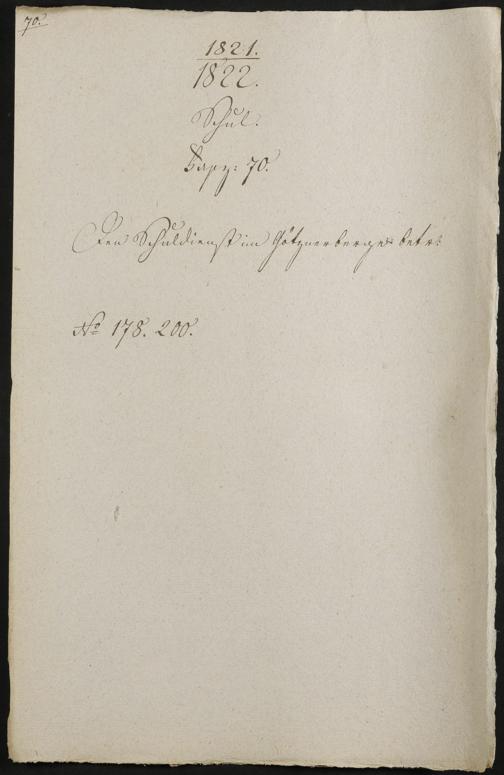 70.
1821.
1822.
Schul.
Fasz: 70.
Den Schuldienst im Götznerberge betr:
No 178. 200.